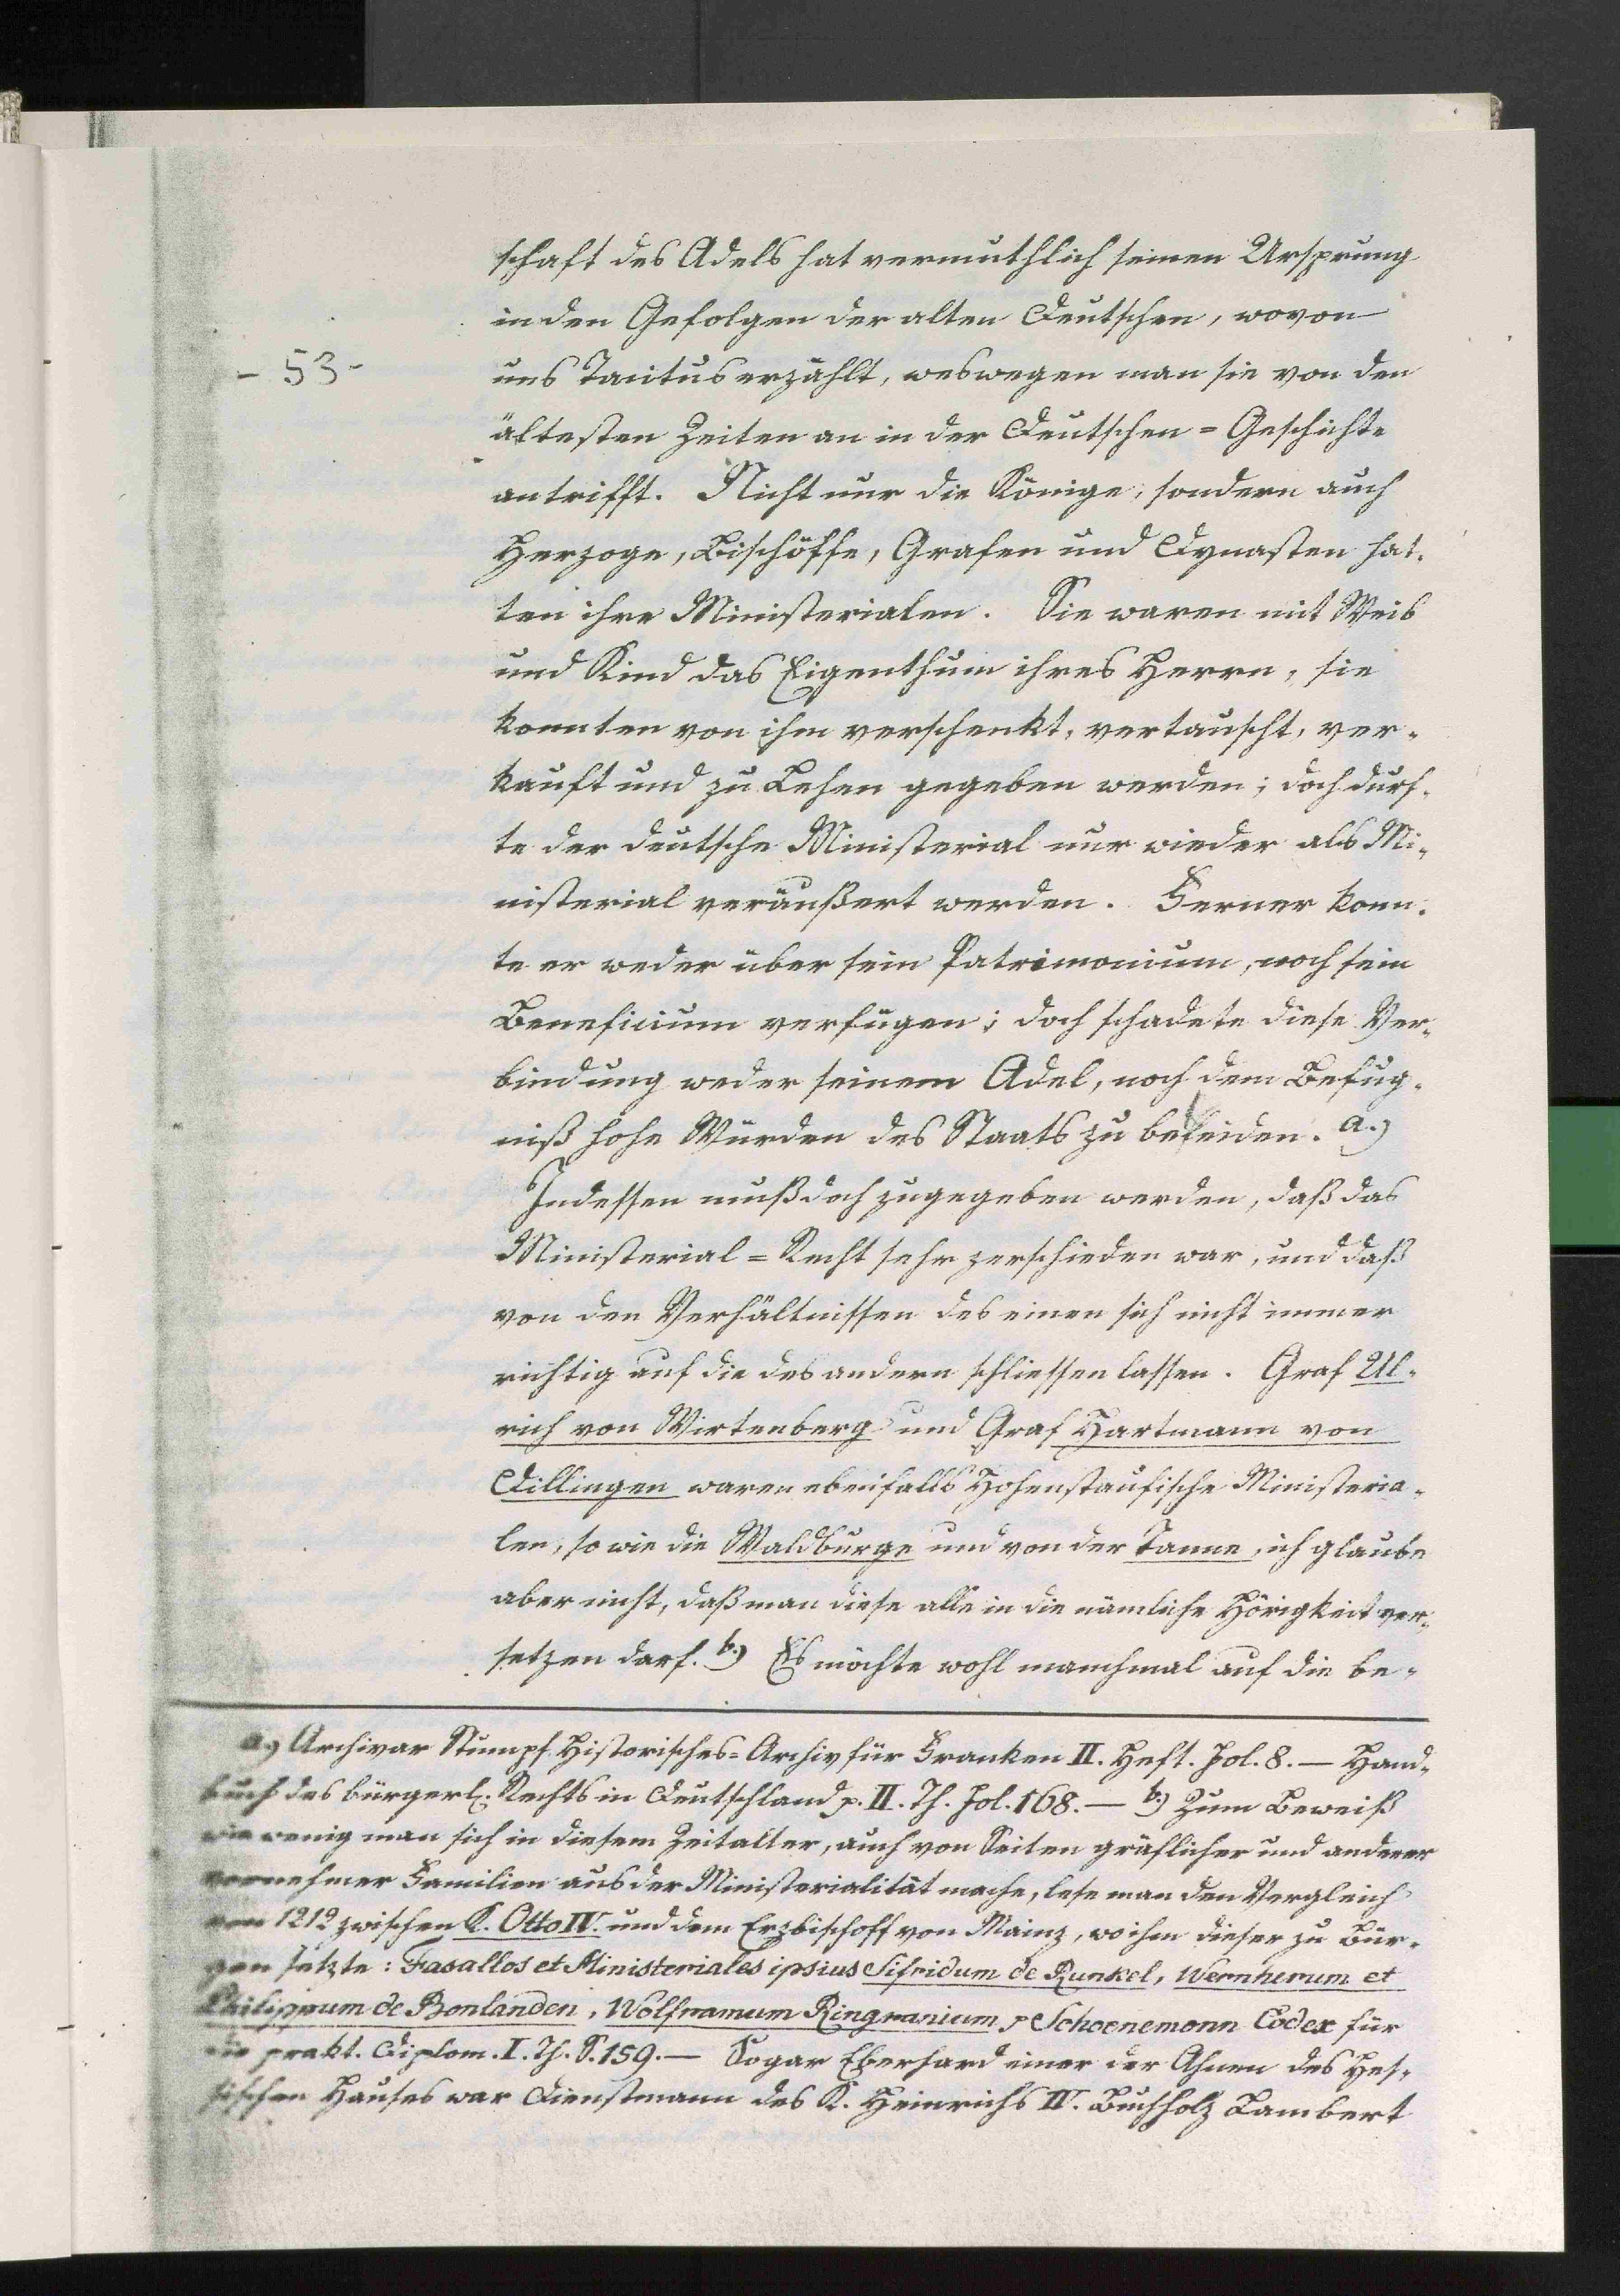 schaft des Adels hat vermuthlich seinen Ursprung
in den Gefolgen der alten Deutschen, wovon
- 53 -
uns Tacitus erzählt, weswegen man sie von den
ältesten Zeiten an in der Deutschen = Geschichte
antrifft. Nicht nur die Könige, sondern auch
Herzoge, Bischöffe, Grafen und Dynasten hat-
ten ihre Ministerialen. Sie waren mit Weib
und Kind das Eigenthum ihres Herrn, sie
konnten von ihm verschenkt, vertauscht, ver-
kauft und zu Lehen gegeben werden; doch durf-
te der deutsche Ministerial nur wieder als Mi-
nisterial veräußert werden. Ferner konn-
te er weder über sein Patrimonium, noch sein
Beneficium verfügen; doch schadete diese Ver-
bindung weder seinem Adel, noch dem Befug-
niß hohe Würden des Staats zu bekleiden. a.)
Indessen muß doch zugegeben werden, daß das
Ministerial = Recht sehr verschieden war, und daß
von den Verhältnissen des einen sich nicht immer
richtig auf die des andern schliessen lassen. Graf Ul-
rich von Wirtenberg und Graf Hartmann von
Dillingen waren ebenfalls Hohenstaufische Ministeria-
len, so wie die Waldburge und von der Tanne, ich glaube
aber nicht, daß man diese alle in die nämliche Hörigkeit ver-
setzen darf. b.) Es möchte wohl manchmal auf die be-
a.) Archivar Stumpf Historisches = Archiv für Franken II. Heft. Fol. 8. — Hand-
buch des bürgerl. Rechts in Deutschland p. II. Th. Fol. 168. — b.) Zum Beweiß
wie wenig man sich in diesem Zeitalter, auch von Seiten gräflicher und anderer
vornehmer Familien aus der Ministerialität mache, lese man den Vergleich
von 1212 zwischen K. Otto IV. und dem Erzbischoff von Mainz, wo ihm dieser zu Bür-
gen setzte: Fasallos et Ministeriales ipsius Sifridum de Runkel, Wernherum et
Philippum de Bonlanden, Wolframum Ringravium p Schoenemonn Codex für
die prakt. Diplom. I. Th. S. 159. — Sogar Eberhard einer der Ahnen des Hes-
sischen Hauses war Dienstmann des K. Heinrichs IV. Buchholz Lambert